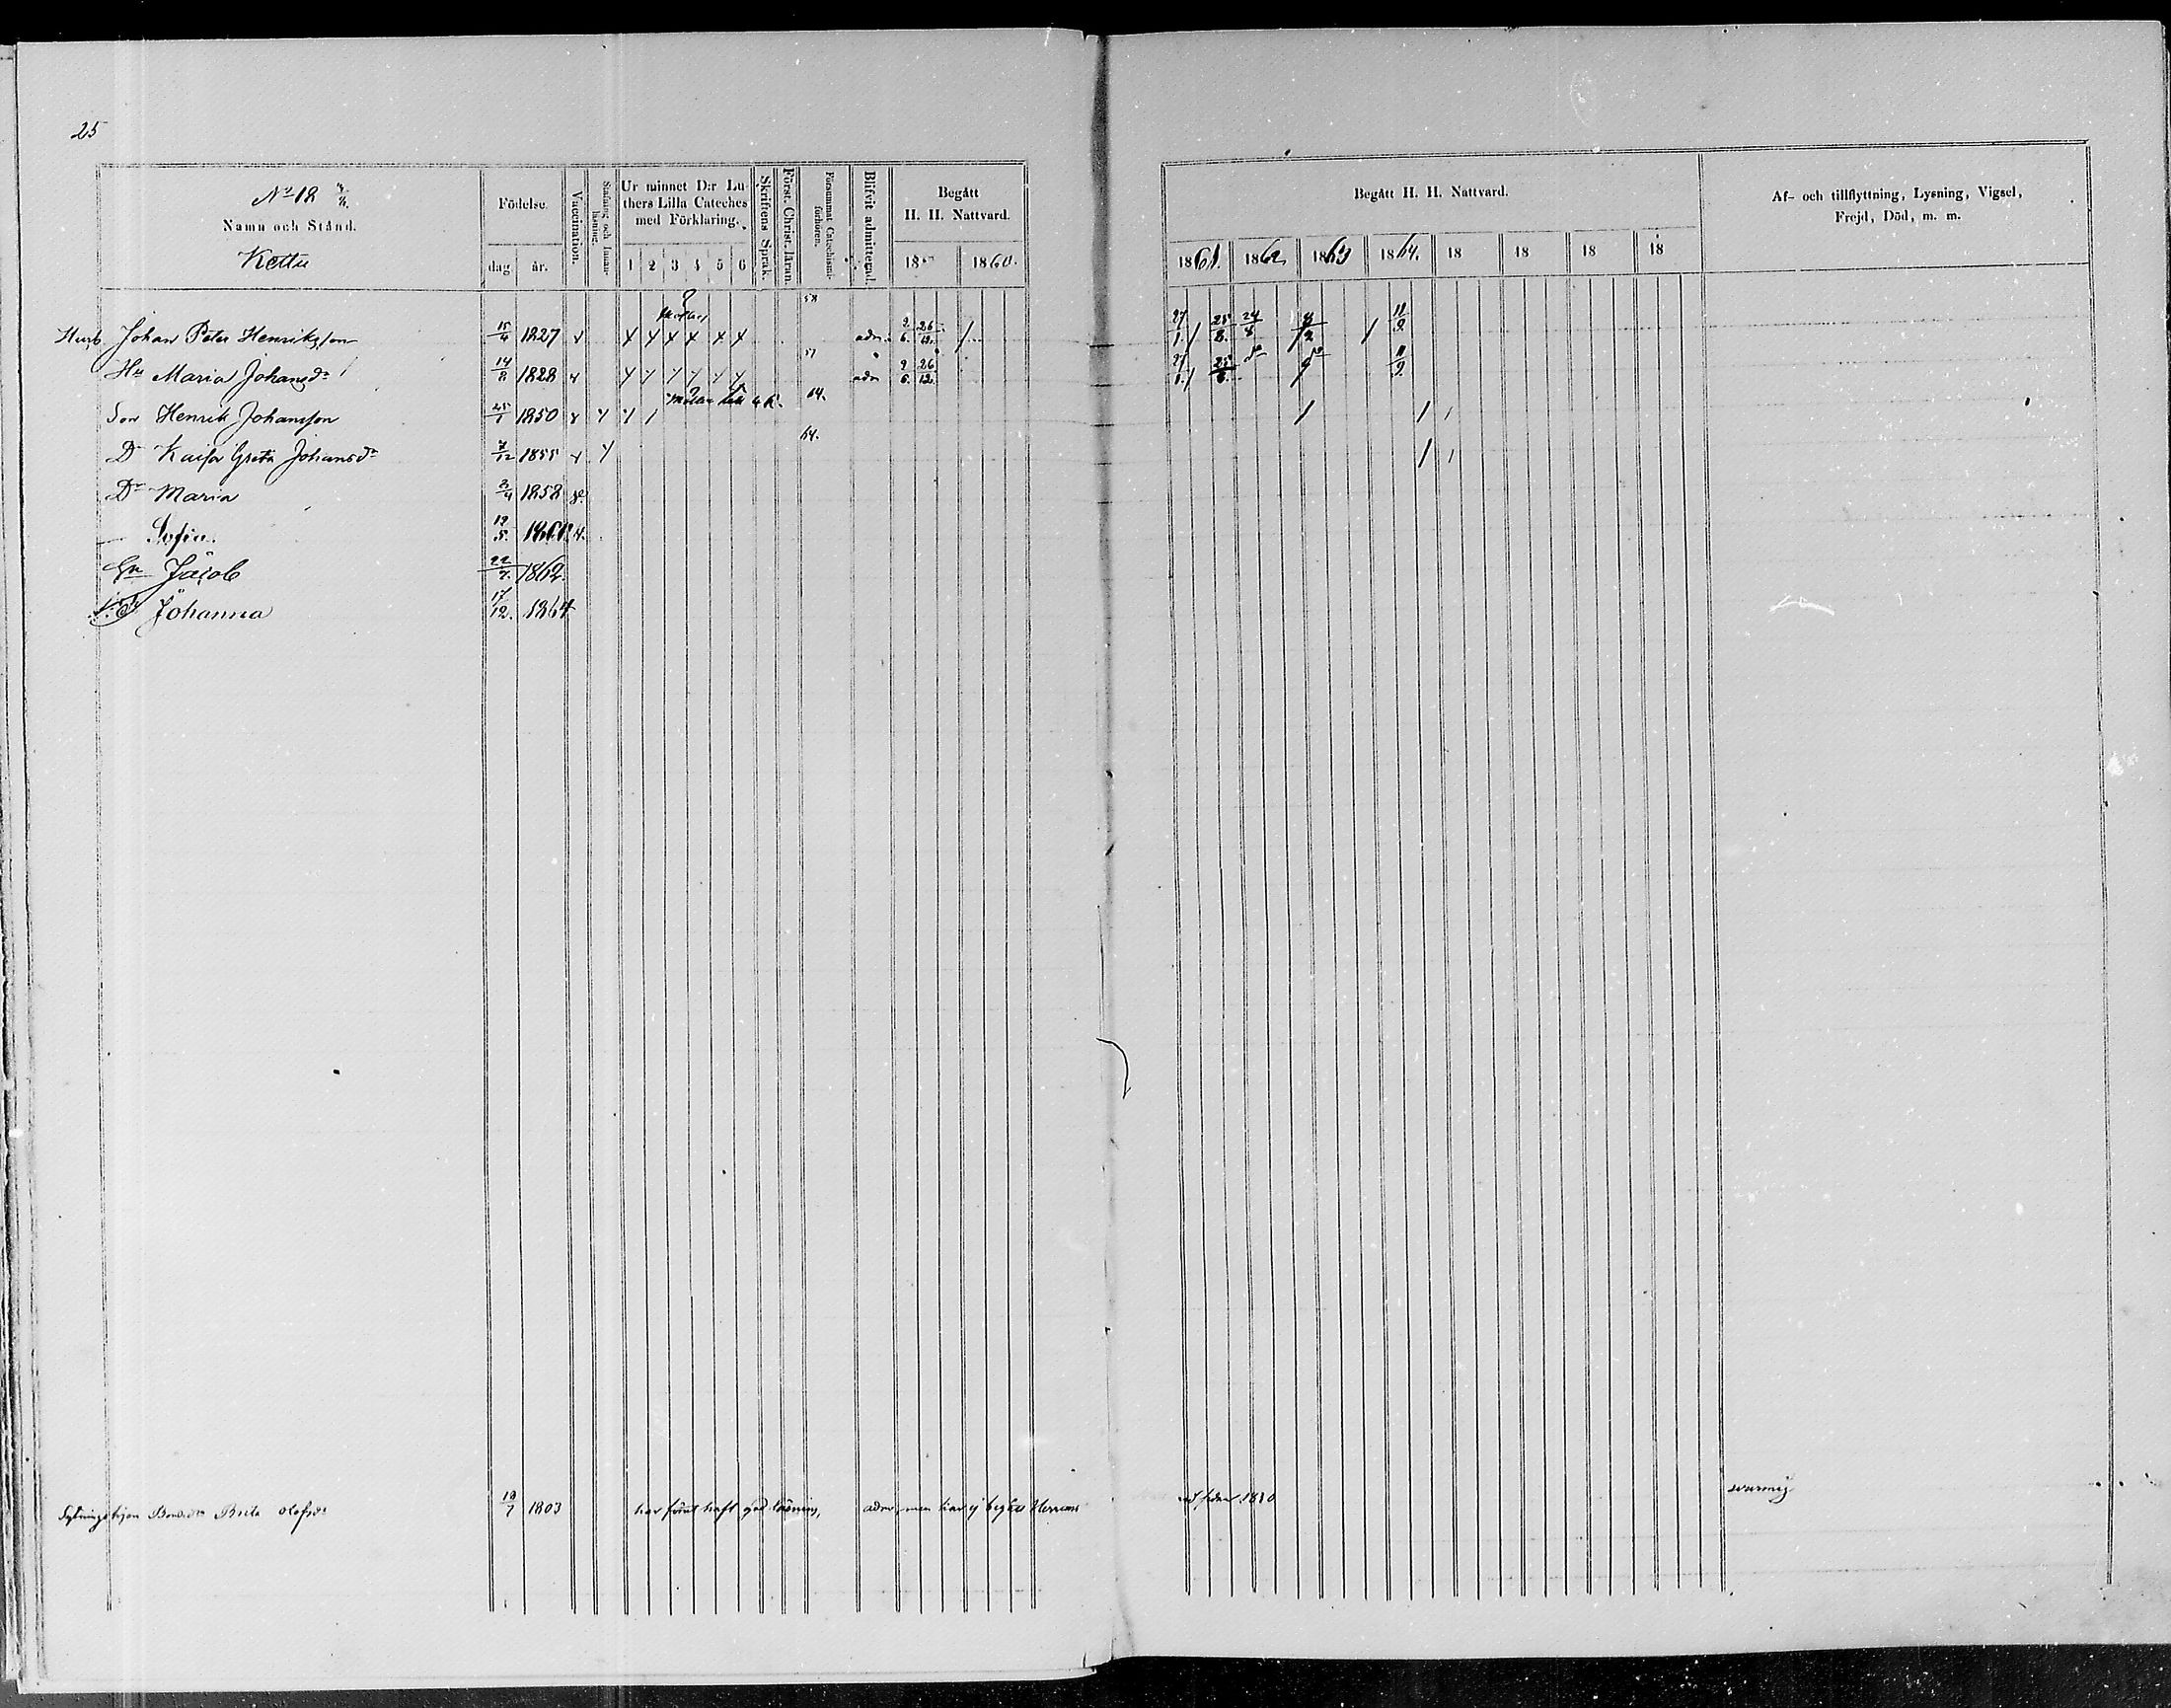 25
No 18
Namn och Stånd.
Kettu
Födelse.
dag år.
Vaccination.
Stafning och Innanläsning.
Ur minnet D:r Luthers Lilla Cateches med Förklaring.
1 2 3 4 5 6
Skriftens Språk.
Först. Christ. läran.
Försummat Catechismiförhören.
Blifvit admitterad.
Begått
H. H. Nattvard.
18 1860.
Begått H. H. Nattvard.
1861. 1862. 1863 1864. 18 18 18 18
Af- och tillflyttning, Lysning, Vigsel,
Frejd, Död, m. m.
58
Husb Johan Peter Henriksson 15/4 1827 adm. 9/6. 26/12. 27/1. 25/8. 24/8 8/2 11/9.
57
Hu Maria Johansdr 14/8 1828 adm 9/6. 26/12. 27/1. 25/8. do do 11/9.
64.
Son Henrik Johansson 25/1 1850
64.
Dr Kaisa Greta Johansdr 7/12 1855
Dr Maria 3/4 1858
— Sofia. 19/5. 1860.
Sn Jacob 22/7. 1862.
Johanna 17/12. 1864
Brita Olofsdr 19/7 1803 har förut haft god läsning, adm, men har ej begått Herrans